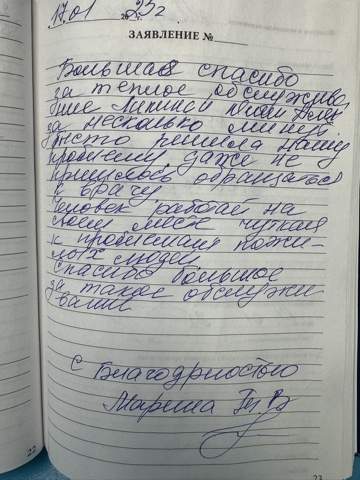 17.01 2023г
ЗАЯВЛЕНИЕ №
Большое спасибо
за теплое обслужива
ние
за несколько минут
решила нашу
проблему даже не
пришлось обращаться
к врачу
Человек работает на
своем месте чуткая
к проблемам пожи-
лых людей
Спасибо большое
за такое обслужи
вание
С Благодрностью
Марина
22
23